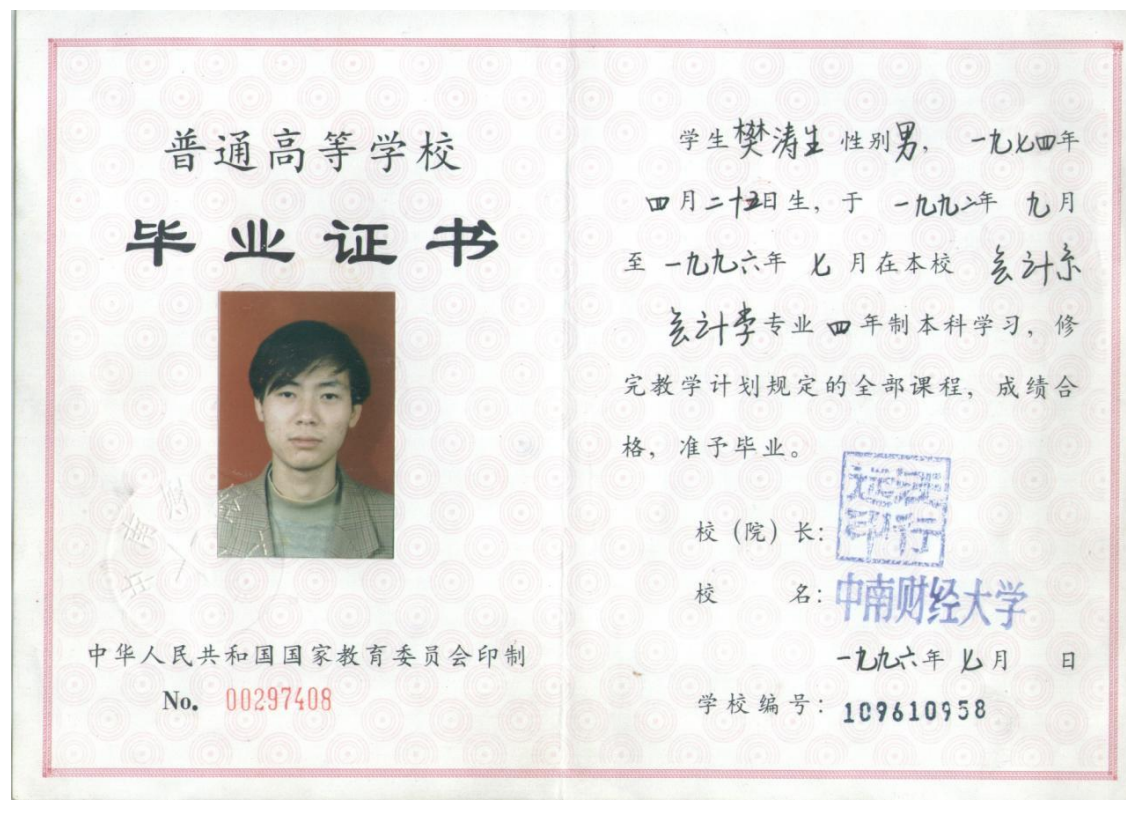 普通高等学校
毕业证书
中华人民共和国国家教育委员会印制
No. 00297408
学生樊涛生性别男，一九七四年
四月二十五日生，于一九九二年九月
至一九九六年七月在本校会计系
会计学专业四年制本科学习，修
完教学计划规定的全部课程，成绩合
格，准予毕业。
校（院）长：
校名：中南财经大学
一九九六年七月 日
学校编号：109610958